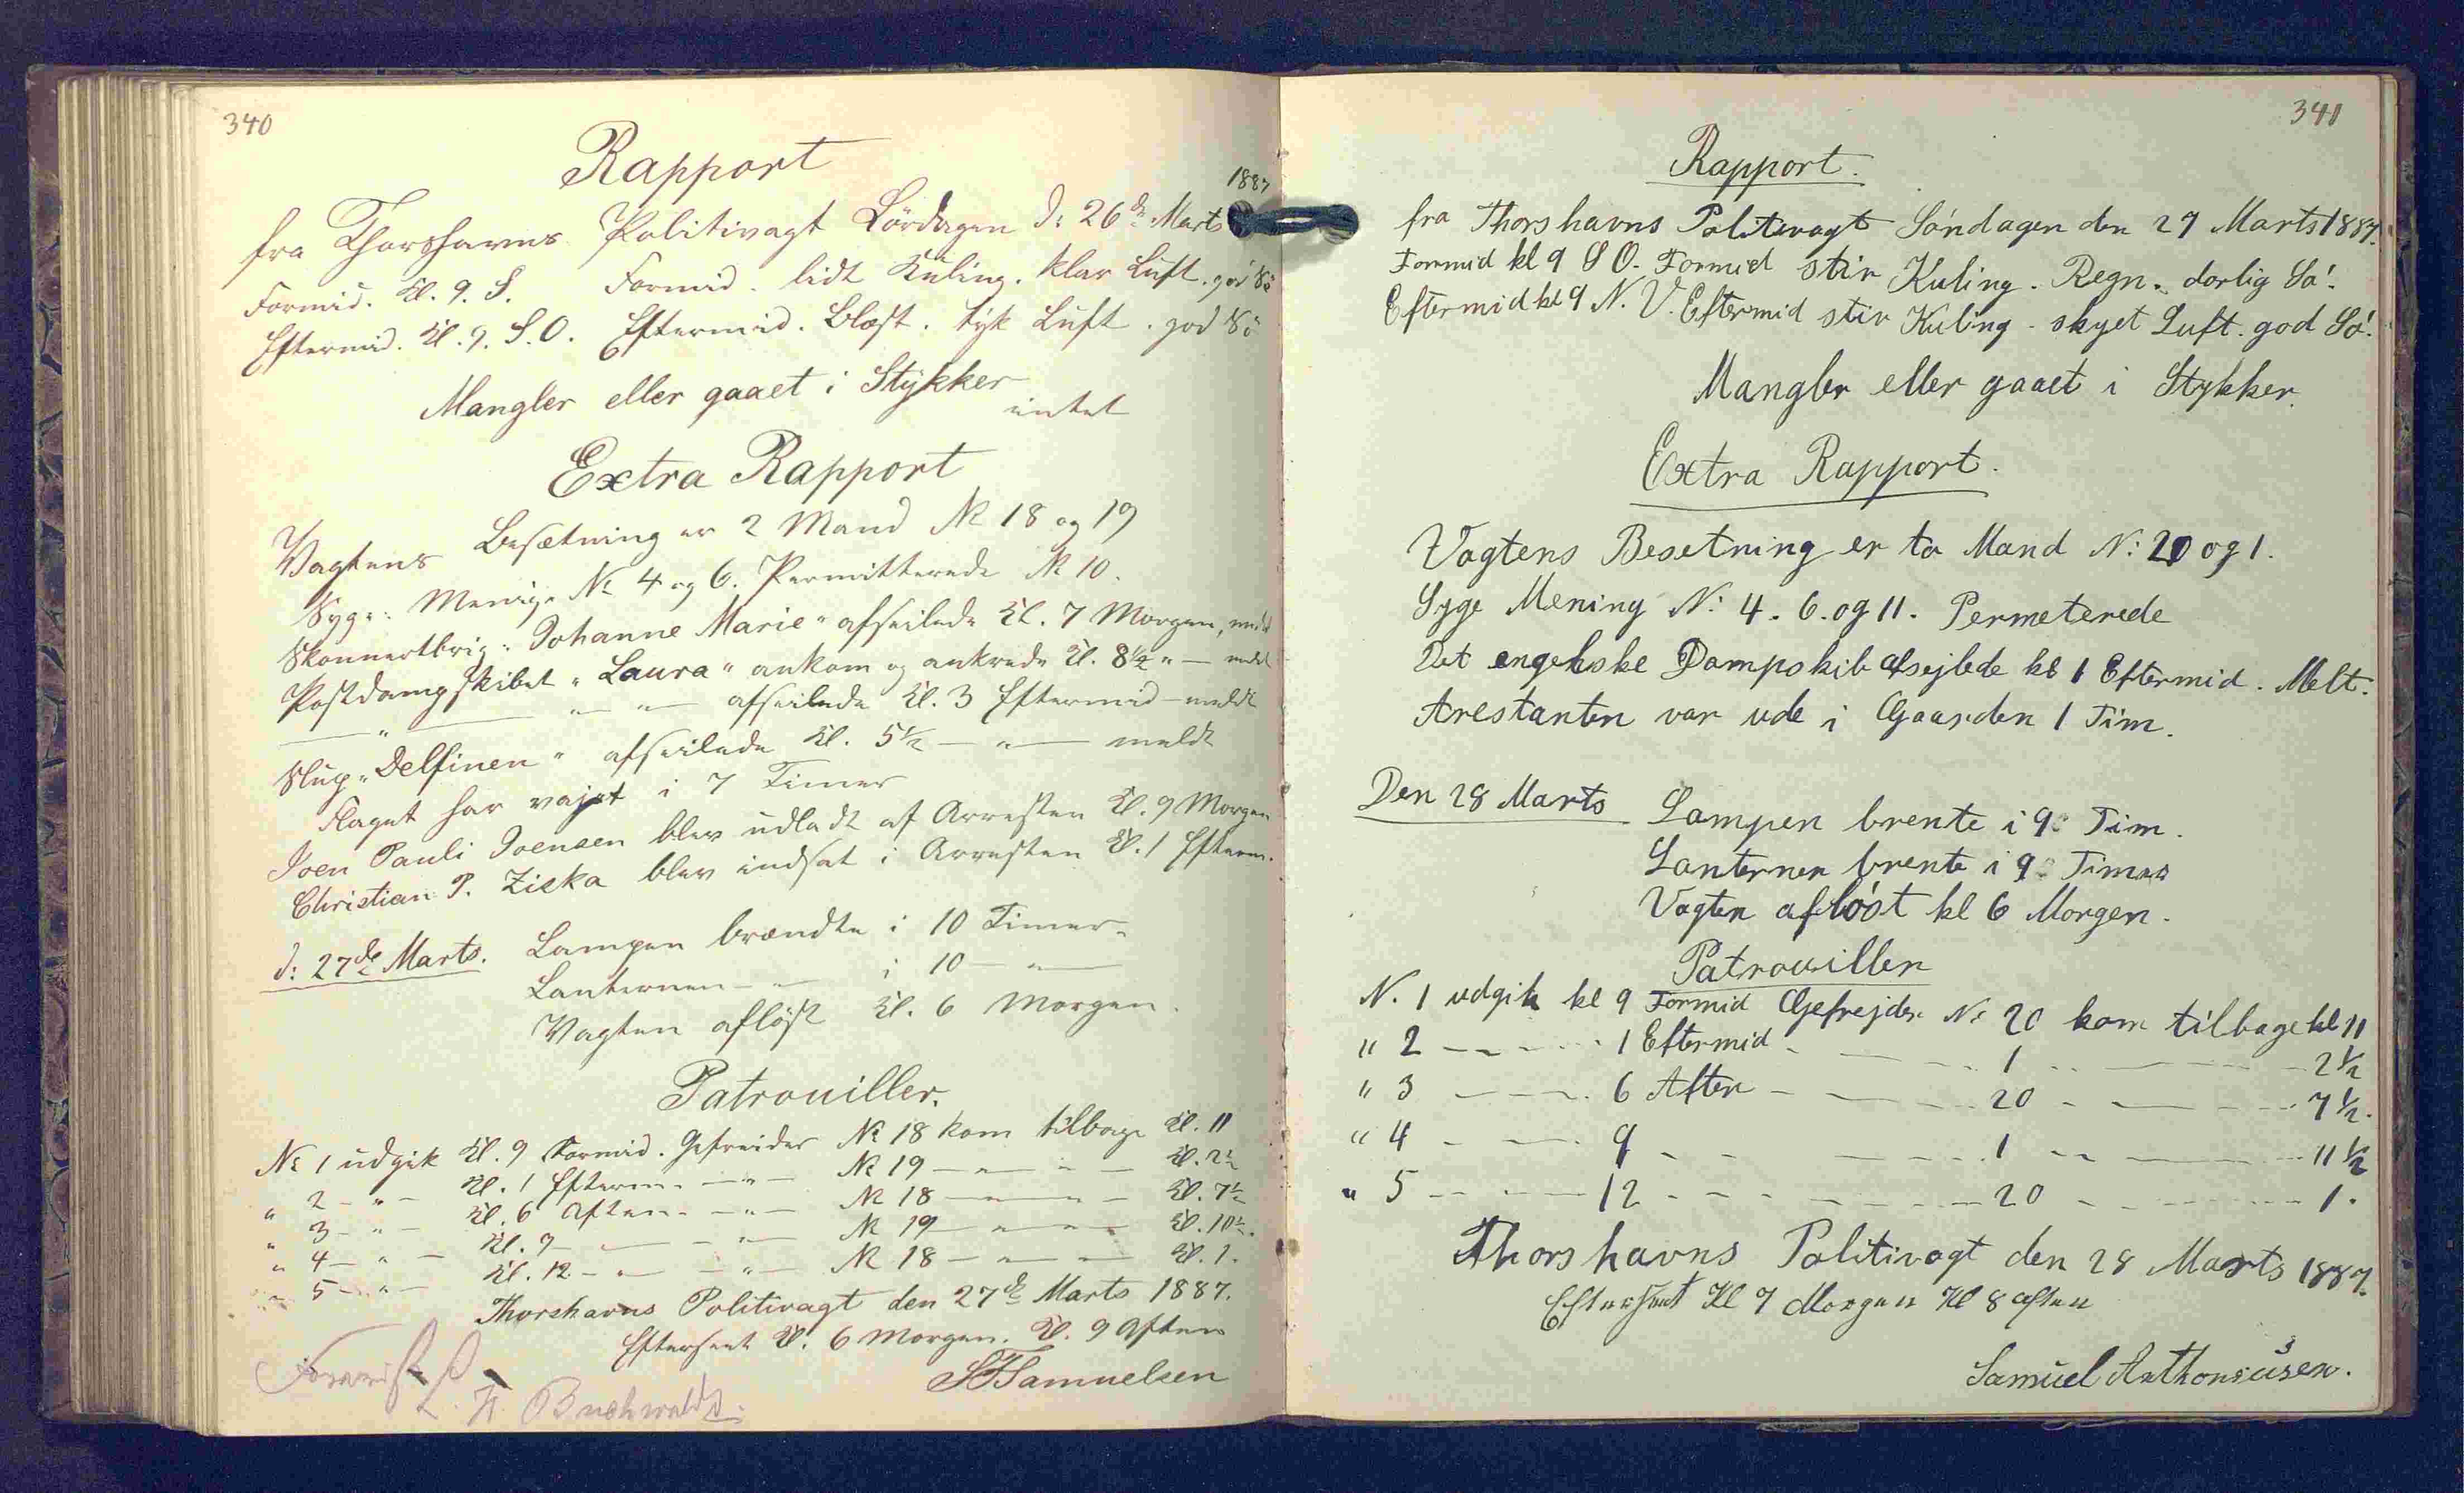 340
Rapport
1887
fra Thorshavns Politivagt Lördagen d: 26de Marts
Formid. Kl. 9. S. Formid. lidt Kuling. klar Luft. god Sö
Eftermid. Kl. 9. S.O. Eftermid. Blæst. tyk Luft. god Sö
Mangler eller gaaet i Stykker
intet
Extra Rapport
Vagtens Besætning er 2 Mand № 18 og 19
Syge: Menige № 4 og 6. Permitterede № 10.
Skonnertbrig „Johanne Marie" afseilede Kl. 7 Morgen, meldt
Postdampskibet „Laura" ankom og ankrede Kl. 8½ " — meldt
— " — " — " — afseilede Kl. 3 Eftermid — meldt
Slup „Delfinen" afseilede Kl. 5½ — " — meldt
Flaget har vajet i 7 Timer
Joen Pauli Joensen blev udladt af Arresten Kl. 9 Morgen
Christian P. Ziska blev indsat i Arresten Kl. 1 Efterm.
d: 27de Marts. Lampen brændte i 10 Timer.
Lanternen — " — i 10 — " —
Vagten aflöst Kl. 6 Morgen.
Patrouiller.
№ 1 udgik Kl. 9 Formid. Gefreider № 18 kom tilbage Kl. 11
" 2 — " — Kl. 1 Efterm. — " — № 19 — " — " — Kl. 2½
" 3 — " — Kl. 6 Aften. — " — № 18 — " — " — Kl. 7½
" 4 — " — Kl. 9 — " — " — № 19 — " — " — Kl. 10½.
" 5 — " — Kl. 12 — " — " — № 18 — " — " — Kl. 1.
Thorshavns Politivagt den 27de Marts 1887.
Efterseet Kl. 6 Morgen. Kl. 9 Aften
SFSamuelsen
Forevist
Buchwaldt.
341
Rapport.
fra Thorshavns Politivagt Söndagen den 27 Marts 1887.
Formid kl 9 S O. Formid stiv Kuling. Regn. dorlig Sö.
Eftermid kl 9 N. V. Eftermid stiv Kuling. skyet Luft. god Sö.
Mangler eller gaaet i Stykker.
Extra Rapport.
Vagtens Besetning er to Mand N: 20 og 1.
Syge Mening N: 4. 6. og 11. Permeterede
Det engelske Dampskib afsejlede kl 1 Eftermid. Melt.
Arestanten var ude i Gaarden 1 Tim.
Den 28 Marts Lampen brente i 9 Tim.
Lanternen brente i 9 Timer
Vagten aflöst kl 6 Morgen.
Patrouillen
N. 1 udgik kl 9 Formid Gefrejder N: 20 kom tilbage kl 11
" 2 — — — 1 Eftermid — — — 1 — — — 2½
" 3 — — — 6 Aften — — — 20 — — — 7½.
" 4 — — — 9 — — — 1 — — — 11½
" 5 — — — 12 — — — 20 — — — 1.
Thorshavns Politivagt den 28 Marts 1887.
Efterseet Kl 7 Morgen Kl 8 Aften
Samuel Anthoniusen.